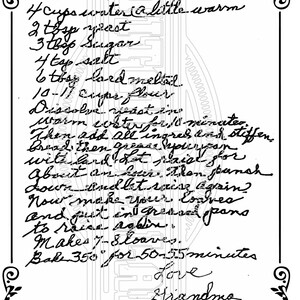 4 cups water (a little warm
2 tbsp yeast
3 tbsp sugar
4 tsp salt
6 tbsp lard melted
10-11 cups flour
Dissolve yeast in
warm water for 10 minutes.
Then add all ingred and stiffen
bread then grease your pan
with lard. Let raise for
about an hour. Then punsh
down and let raise again
Now make your loaves
and put in greased pans
to raise again.
Makes 7-8 loaves.
Bake 350° for 50-55 minutes
Love
Grandma